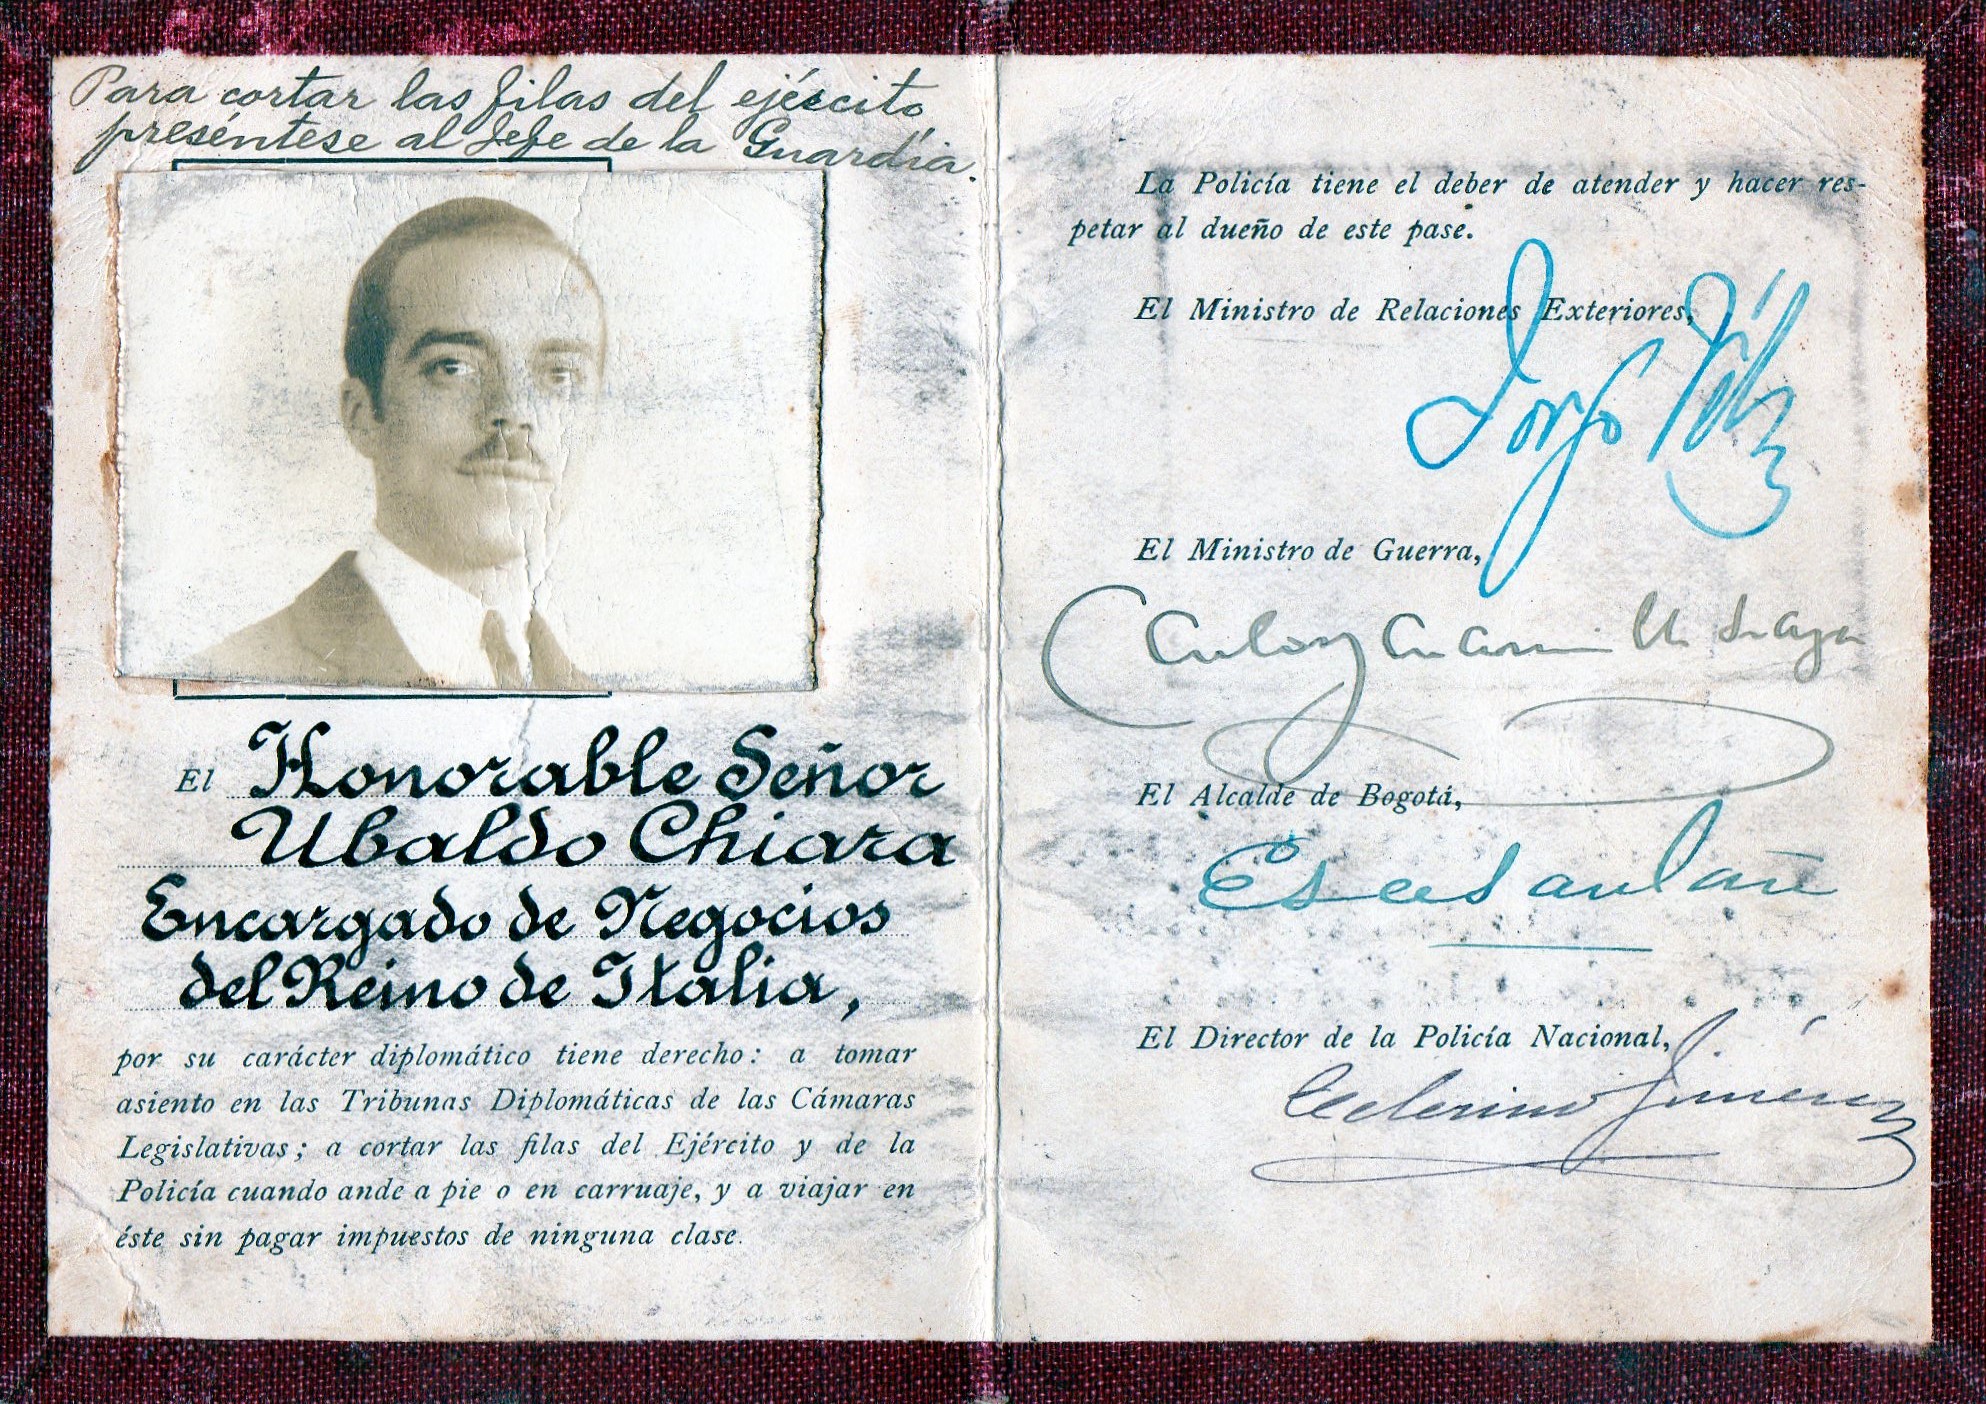 Para cortar las filas del ejército,
preséntese al Jefe de la Guardia.
El Honorable Señor
Ubaldo Chiara
Encargado de Negocios
del Reino de Italia,
por su carácter diplomático tiene derecho: a tomar
asiento en las Tribunas Diplomáticas de las Cámaras
Legislativas; a cortar las filas del Ejército y de la
Policía cuando ande a pie o en carruaje, y a viajar en
éste sin pagar impuestos de ninguna clase.
La Policía tiene el deber de atender y hacer res-
petar al dueño de este pase.
El Ministro de Relaciones Exteriores,
Jorge
El Ministro de Guerra,
Carlos
El Alcalde de Bogotá,
El Director de la Policía Nacional,
Celerino Jiménez